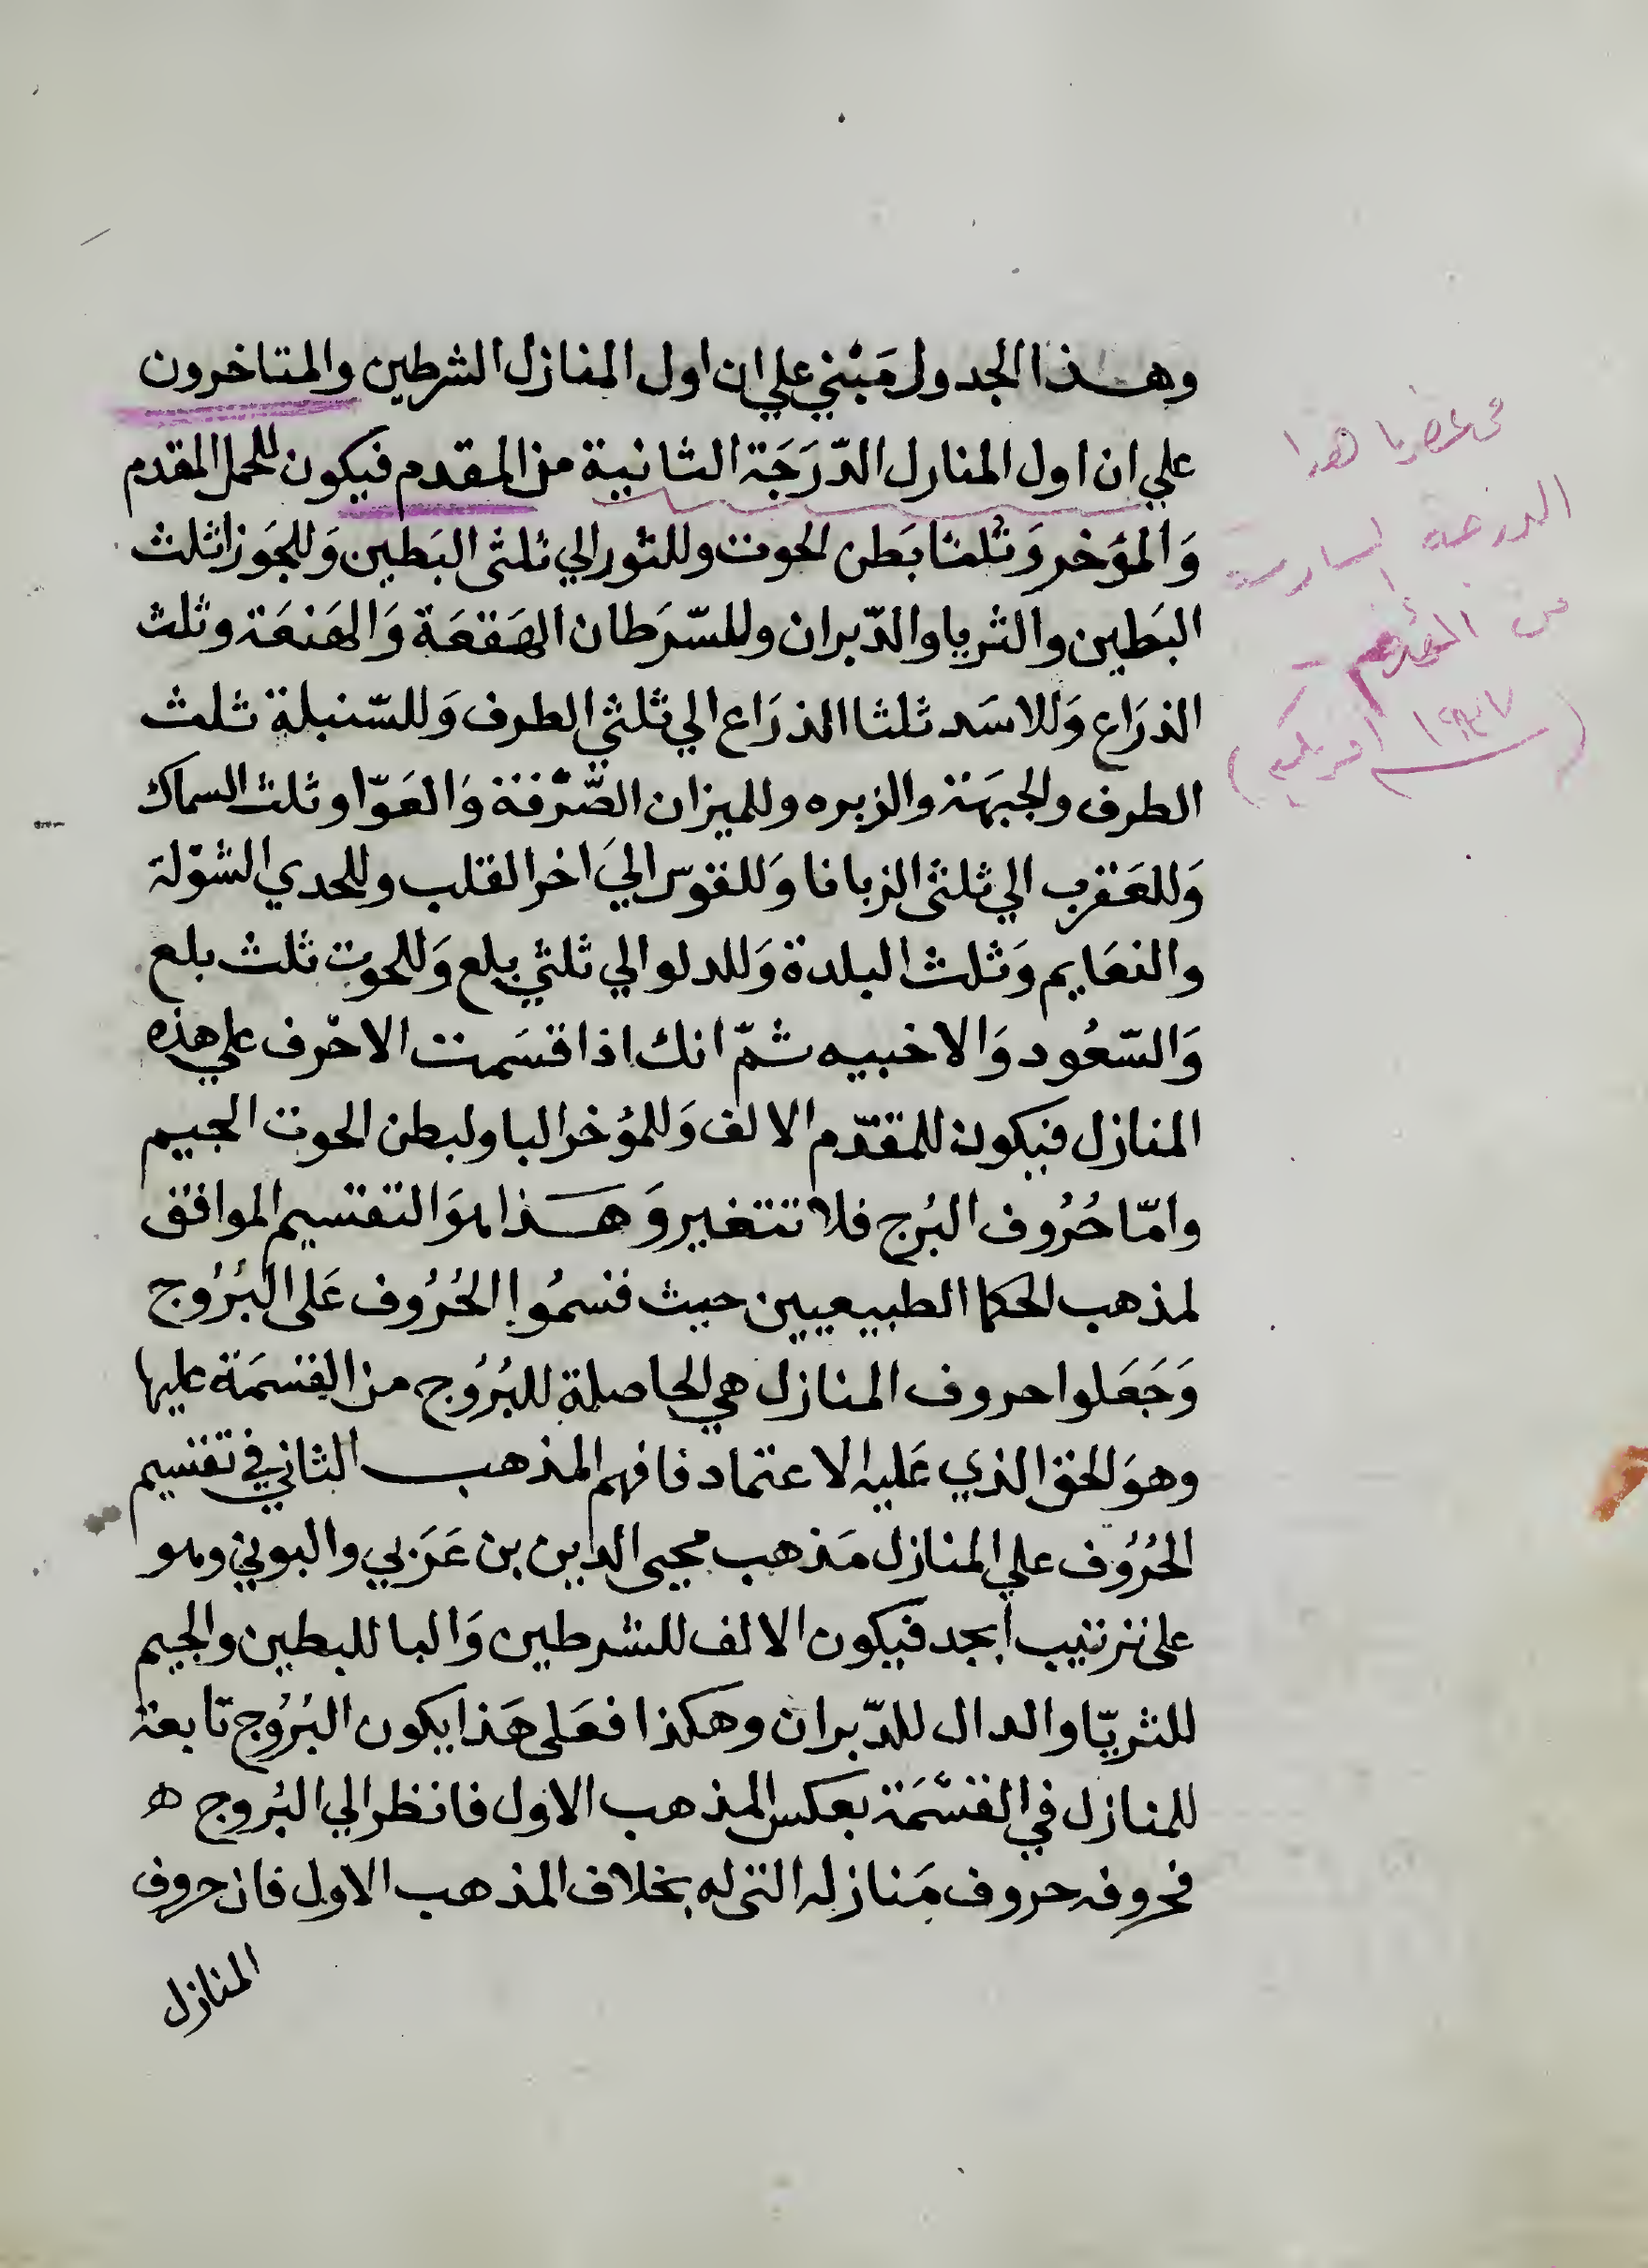 وهذا الجدول مَبْني علي ان اول المنازل الشرطين والمتاخرون
علي ان اول المنارل الدّرَجَة الثانية من المقدم فيكون للحمل المقدم
وَالمؤخر وَثلثا بَطن الحوت وللثور الي ثلثى البَطين وَللجَوزا ثلث
البَطين والثريا والدّبران وللسّرَطان الهَقعَة وَالهَنعَة وثلث
الذرَاع وَللاسَد ثلثا الذرَاع الي ثلثي الطرف وَللسّنبلة ثلث
الطرف والجبَهة والزبره وللميزان الصّرْفة وَالعَوّا وثلث السماك
وَللعَقرب الي ثلثى الزبانا وَللقوس الىَ اخر القلب وللجدي الشوّلة
والنعَايم وَثلث البلدة وَللدلو الي ثلثي بلع وَللحوت ثلث بلع
وَالسّعُود وَالاخبيه ثمّ انك اذا قسَمت الاحْرف علي هذه
المنازل فيكون للمقدّم الالف وَللمؤخر البا ولبطن الحوت الجيم
وامّا حُرُوف البُرج فلا تتغير وَهذا هوَ التقسيم الموافق
لمذهب الحكما الطبيعيين حيث قسمُوا الحُرُوف عَلى البُرُوج
وَجَعَلوا حروف المنازل هي الحاصلة للبُرُوج من القسمَة عليها
وهوَ الحق الذي عَليه الاعتماد فافهم المذهب الثاني في تقسيم
الحُرُوف علي المنازل مَذهب محيى الدين بن عَرَبي والبوني وهو
على ترتيب أبجد فيكون الالف للشرطين وَالبا للبطين والجيم
للثريّا والدال للدّبران وهكذا فعَلى هَذا يكون البُرُوج تابعة
للمنازل في القسْمَة بعكس المذهب الاول فانظر الي البُروج ه
فحروفه حروف مَنازله التى له بخلاف المذهب الاول فان حروف
المنازل
هدا
الدرجة
من المقدم